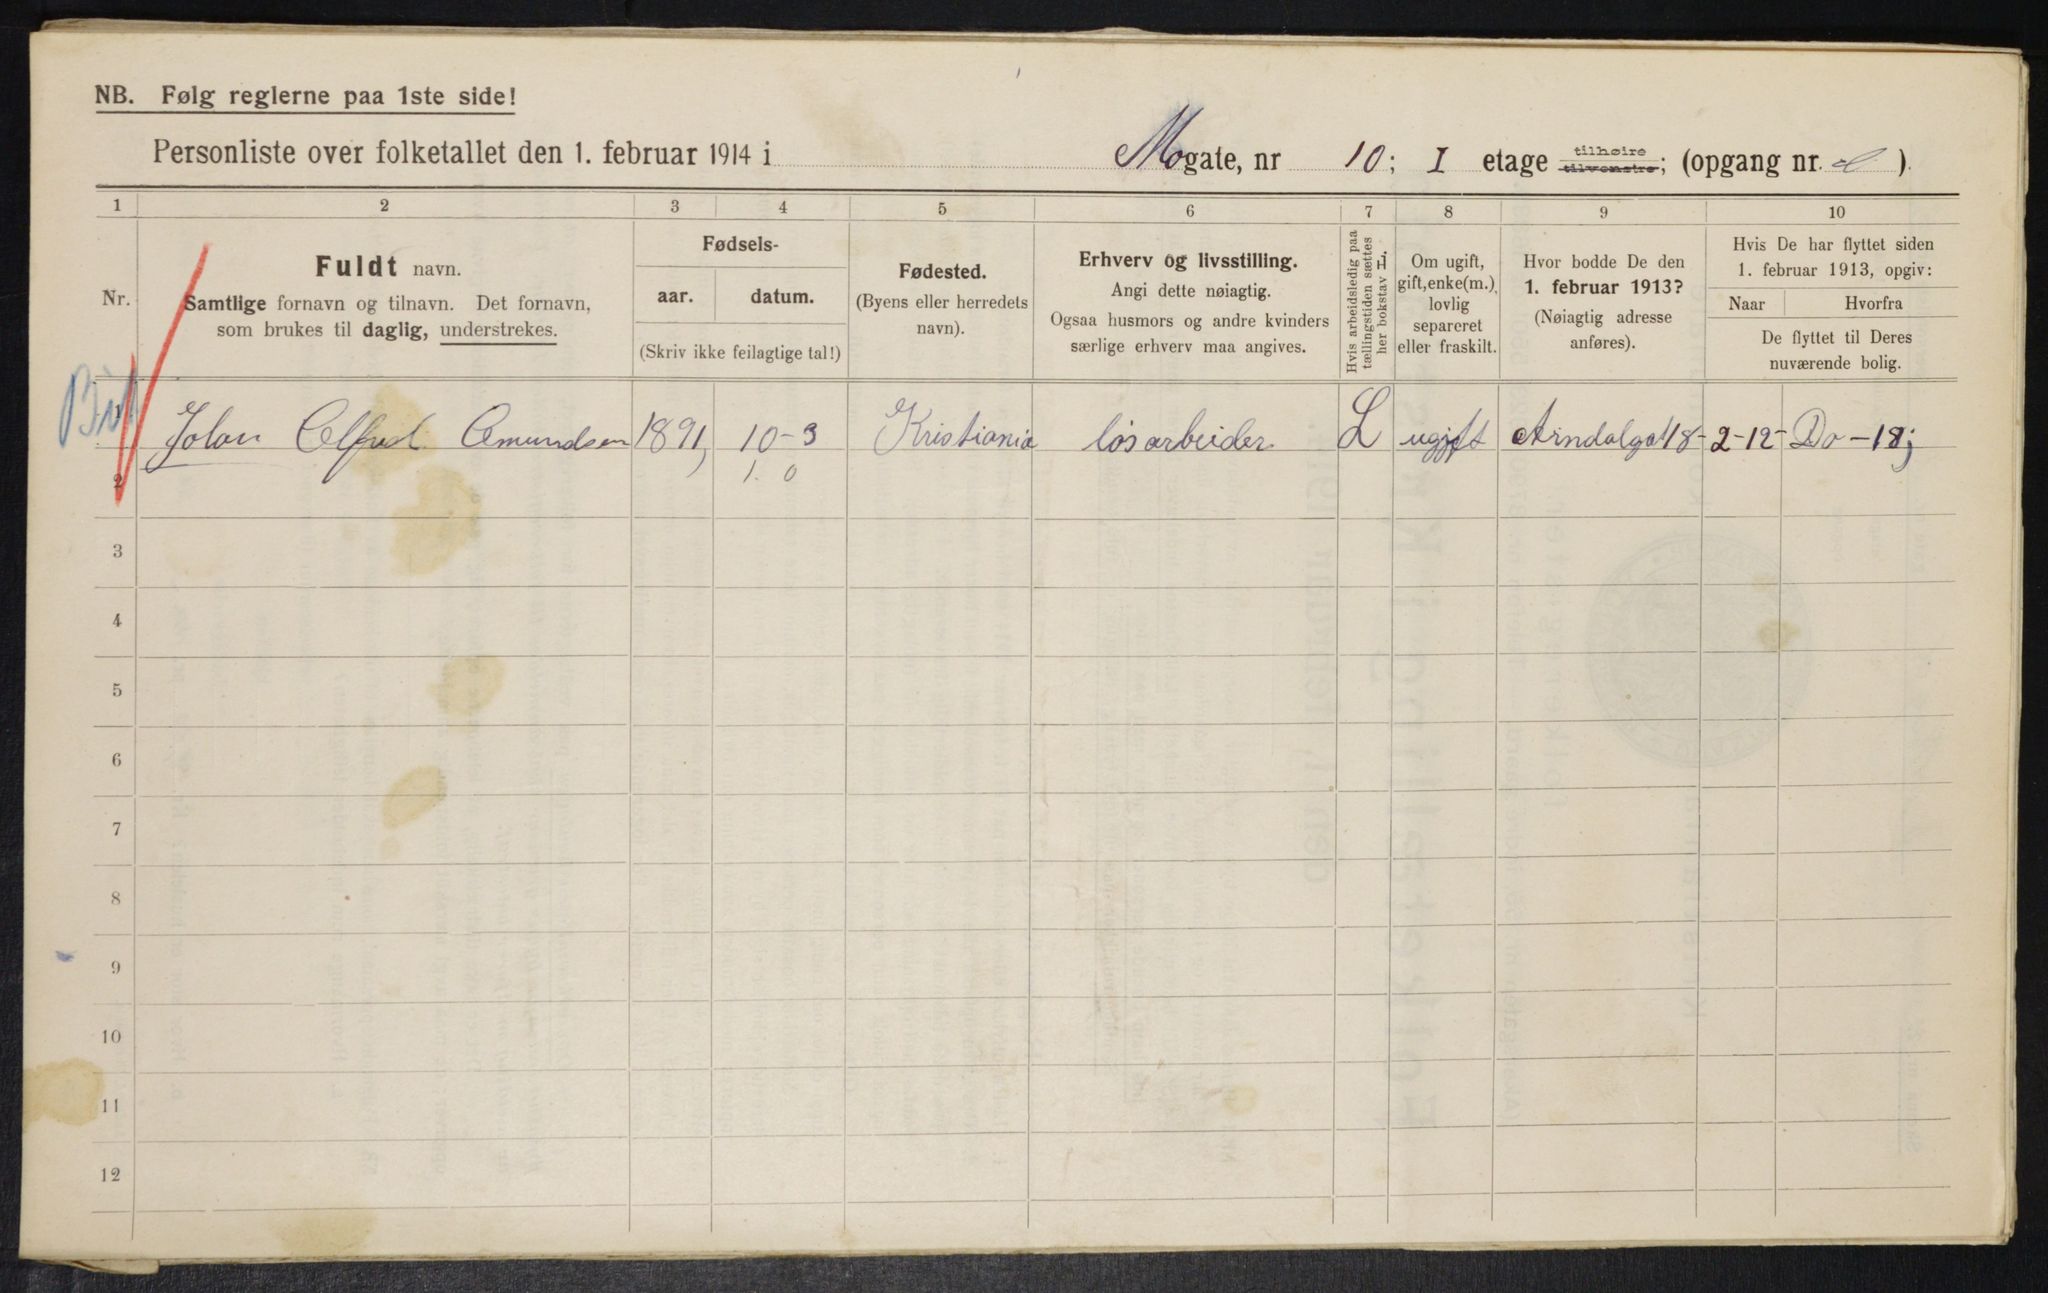 NB. Følg reglerne paa 1ste side!
Personliste over folketallet den 1. februar 1914 i Mogate, nr 10; I etage tilhøire tilvenstre; (opgang nr. ).
1 2 3 4 5 6 7 8 9 10
Nr.
Fuldt navn.
Samtlige fornavn og tilnavn. Det fornavn,
som brukes til daglig, understrekes.
Fødsels-
aar. datum.
(Skriv ikke feilagtige tal!)
Fødested.
(Byens eller herredets
navn).
Erhverv og livsstilling.
Angi dette nøiagtig.
Ogsaa husmors og andre kvinders
særlige erhverv maa angives.
Hvis arbeidsledig paa
tællingstiden sættes
her bokstav L.
Om ugift,
gift, enke(m.),
lovlig
separeret
eller fraskilt.
Hvor bodde De den
1. februar 1913?
(Nøiagtig adresse
anføres).
Hvis De har flyttet siden
1. februar 1913, opgiv:
Naar Hvorfra
De flyttet til Deres
nuværende bolig.
1 Johan Alfred Amundsen 1891, 10-3 Kristiania løsarbeider L ugift Arndalgat 18- 2-12- Do-18;
2 1. 0
3
4
5
6
7
8
9
10
11
12